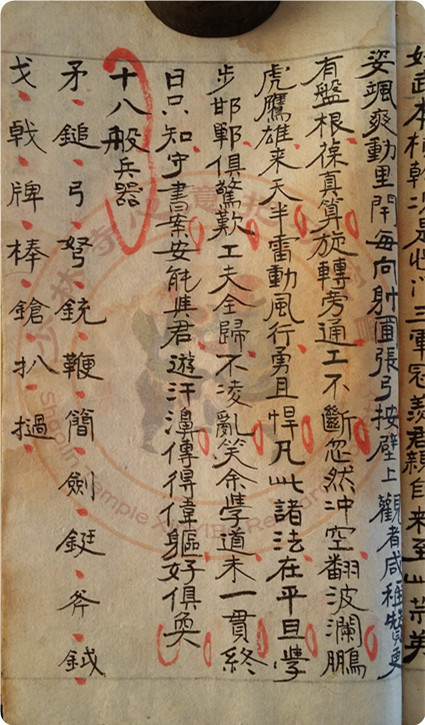 好武本
三軍冠羨君親自来至此
姿颯爽動里閈每向射圃張弓按壁上觀者咸稱贊更
有盤根葆真算旋轉旁通工不斷忽然冲空翻波瀾鵬
虎鷹雄来天半雷動風行勇且悍凡此諸法在平旦學
步邯鄲俱驚歎工夫全歸不凌亂笑余學道未一貫終
日只知守書案安能與君遊汗漫傳得偉軀好俱奐
十八般兵器
矛鎚弓弩銃鞭簡劍鋌斧鉞
戈戟牌棒鎗扒撾
shaolin Temple